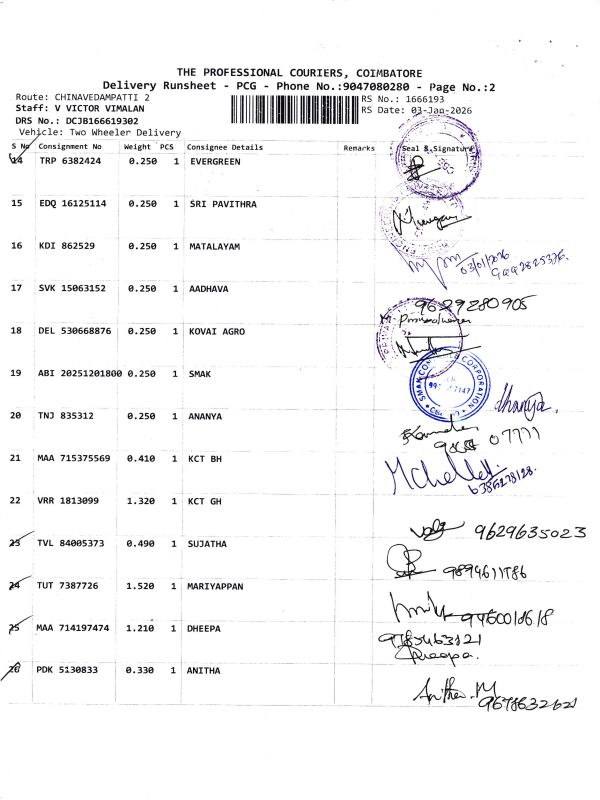 THE PROFESSIONAL COURIERS, COIMBATORE
Delivery Runsheet - PCG - Phone No.:9047080280 - Page No.:2
Route: CHINAVEDAMPATTI 2
RS No.: 1666193
Staff: V VICTOR VIMALAN
RS Date: 03-Jan-2026
DRS No.: DCJB166619302
Vehicle: Two Wheeler Delivery
S No Consignment No Weight PCS Consignee Details Remarks Seal & Signature
14 TRP 6382424 0.250 1 EVERGREEN
15 EDQ 16125114 0.250 1 SRI PAVITHRA
16 KDI 862529 0.250 1 MATALAYAM
03/01/2026
17 SVK 15063152 0.250 1 AADHAVA
9629280905
18 DEL 530668876 0.250 1 KOVAI AGRO
19 ABI 20251201800 0.250 1 SMAK
dhanya.
20 TNJ 835312 0.250 1 ANANYA
21 MAA 715375569 0.410 1 KCT BH
6385278128.
22 VRR 1813099 1.320 1 KCT GH
9629635023
23 TVL 84005373 0.490 1 SUJATHA
9894611786
24 TUT 7387726 1.520 1 MARIYAPPAN
25 MAA 714197474 1.210 1 DHEEPA
Dheepa.
26 PDK 5130833 0.330 1 ANITHA
Anitha. M